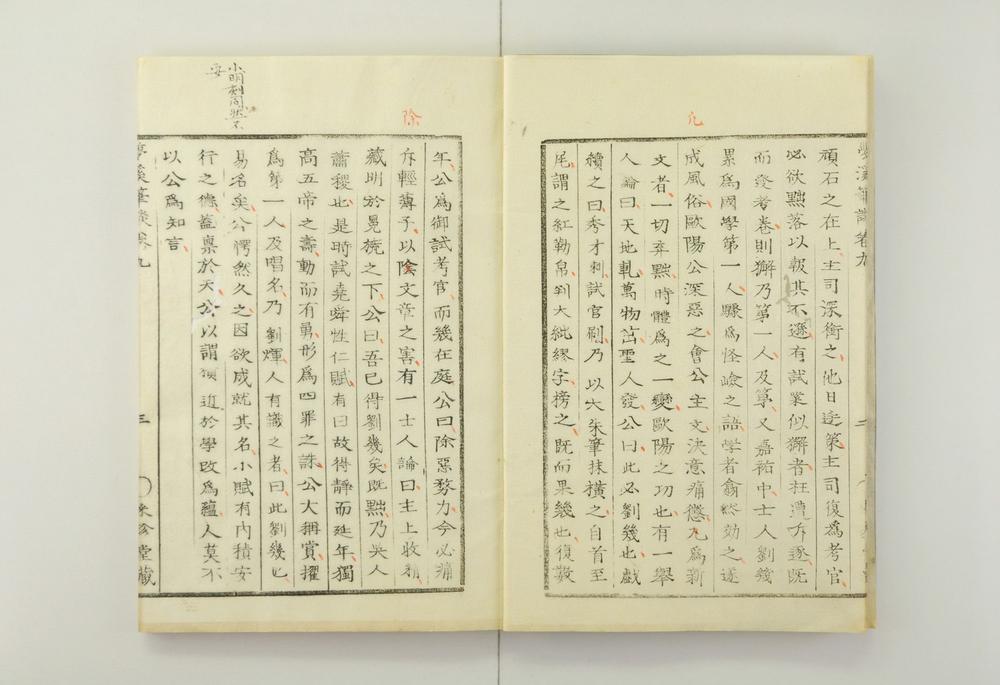 夢溪筆談卷九
頑石之在上主司深銜之他日廷策主司復爲考官
必欲黜落以報其不遜有試業似獬者枉遭斥逐既
而發考卷則獬乃第一人及第又嘉祐中士人劉幾
累爲國學第一人驟爲怪嶮之語學者翕然効之遂
成風俗歐陽公深惡之會公主文決意痛懲凡爲新
凡
文者一切弃黜時體爲之一變歐陽之功也有一舉
人論曰天地軋萬物茁聖人發公曰此必劉幾也戲
續之曰秀才剌試官刷乃以大朱筆抹橫之自首至
尾謂之紅勒帛判大紕繆字榜之既而果幾也復數
年公爲御試考官而幾在庭公曰除惡務力今必痛
除
斥輕薄子以陰文章之害有一士人論曰主上收精
藏明於冕旒之下公曰吾已得劉幾矣既黜乃吳人
蕭稷也是時試堯舜性仁賦有曰故得靜而延年獨
高五帝之壽動而有勇形爲四罪之誅公大稱賞擢
爲第一人及唱名乃劉煇人有識之者曰此劉幾也
易名矣公愕然久之因欲成就其名小賦有內積安
小明刻同然不
妥
行之德蓋稟於天公以謂積近於學改爲蘊人莫不
以公爲知言
夢溪筆談卷九
三
珍堂藏